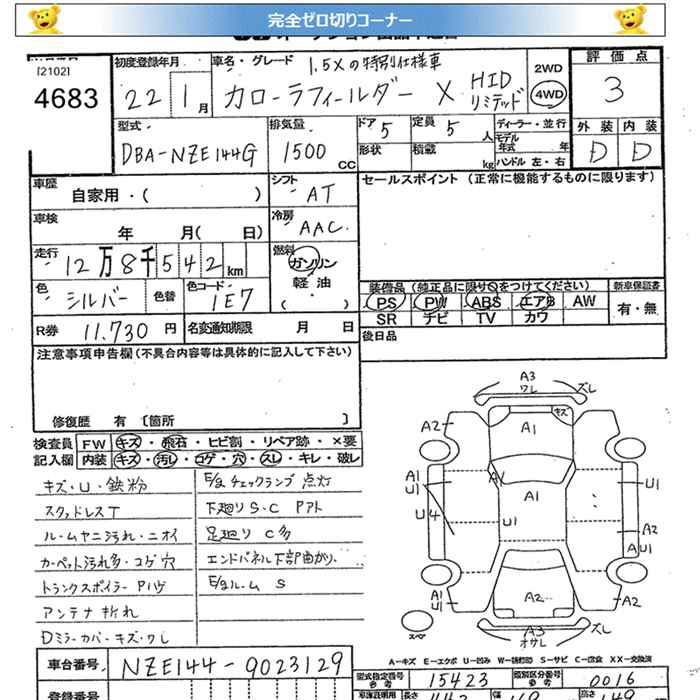 完全ゼロ切りコーナー
[2102]
4683
初度登録年月 22 1月
車名・グレード 1.5Xの特別仕様車
カローラフィールダー X HID リミテッド
2WD
4WD
評価点
3
外装 内装
D D
型式 DBA-NZE144G
排気量 1500 CC
ドア 5
定員 5人
形状
積載 kg
ディーラー・並行
モデル年式 年
ハンドル 左・右
車歴 自家用・( )
シフト AT
セールスポイント (正常に機能するものに限ります)
車検 年 月( 日)
冷房 AAC
走行 12万8千542km
燃料 ガソリン
軽油・
( )
色 シルバー
色替
色コード 1E7
装備品 (純正品に限り○をつけてください)
PS PW ABS エアB AW
SR ナビ TV カワ
新車保証書
有・無
R券 11,730円
名変通知期限 月 日
後日品
注意事項申告欄(不具合内容等は具体的に記入して下さい)
修復歴 有 〔箇所 〕
検査員記入欄
FW キズ・飛石・ヒビ割・リペア跡・×要
内装 キズ・汚レ・コゲ・穴・スレ・キレ・破レ
キズ・U・鉄粉
スタッドレスT
ルームヤニ汚れ・ニオイ
カーペット汚れ多・コゲ穴
トランクスポイラーPハゲ
アンテナ折れ
Dミラーカバーキズ・ワレ
E/gチェックランプ点灯
下廻りS・C Pアト
足廻りC多
エンドパネル下部曲がり
E/gルームS
A3
ワレ
ズレ
キズ
A1
A2
A2
A1
A1
U1
U4
A1
U1
U1
A2
A
U1
A1
U1
A2
A2
スペア
A3
オサレ
ズレ
A-キズ E-エクボ U-凹み W-補修跡 S-サビ C-腐食 X-要交換 XX-交換済
車台番号 NZE144-9023129
型式指定番号 参考 15423
類別区分番号 参考 0016
登録番号